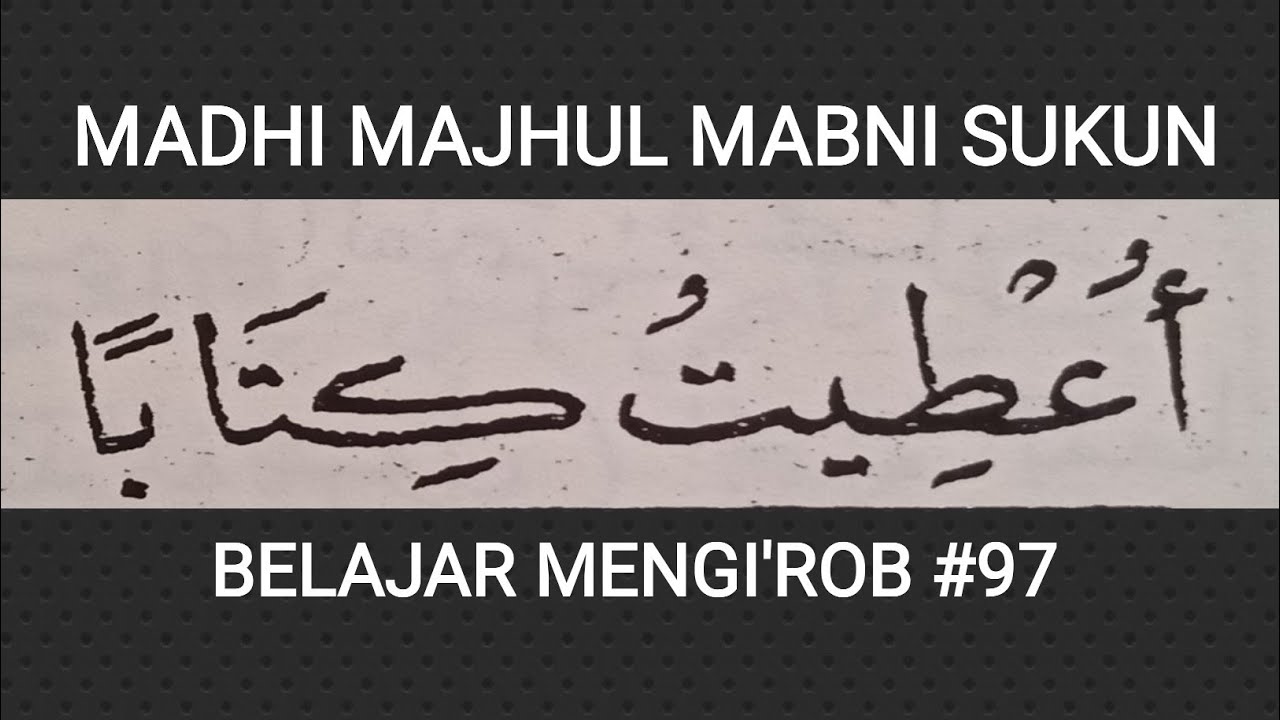 MADHI MAJHUL MABNI SUKUN
أُعْطِيتُ كِتَابًا
BELAJAR MENGI'ROB #97